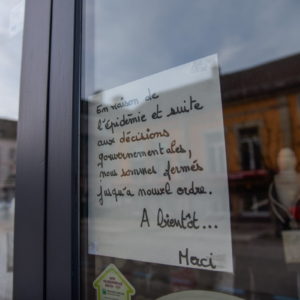 En raison de
l'épidémie et suite
aux décisions
gouvernementales,
nous sommes fermés
jusqu'à nouvel ordre.
A bientôt...
Merci